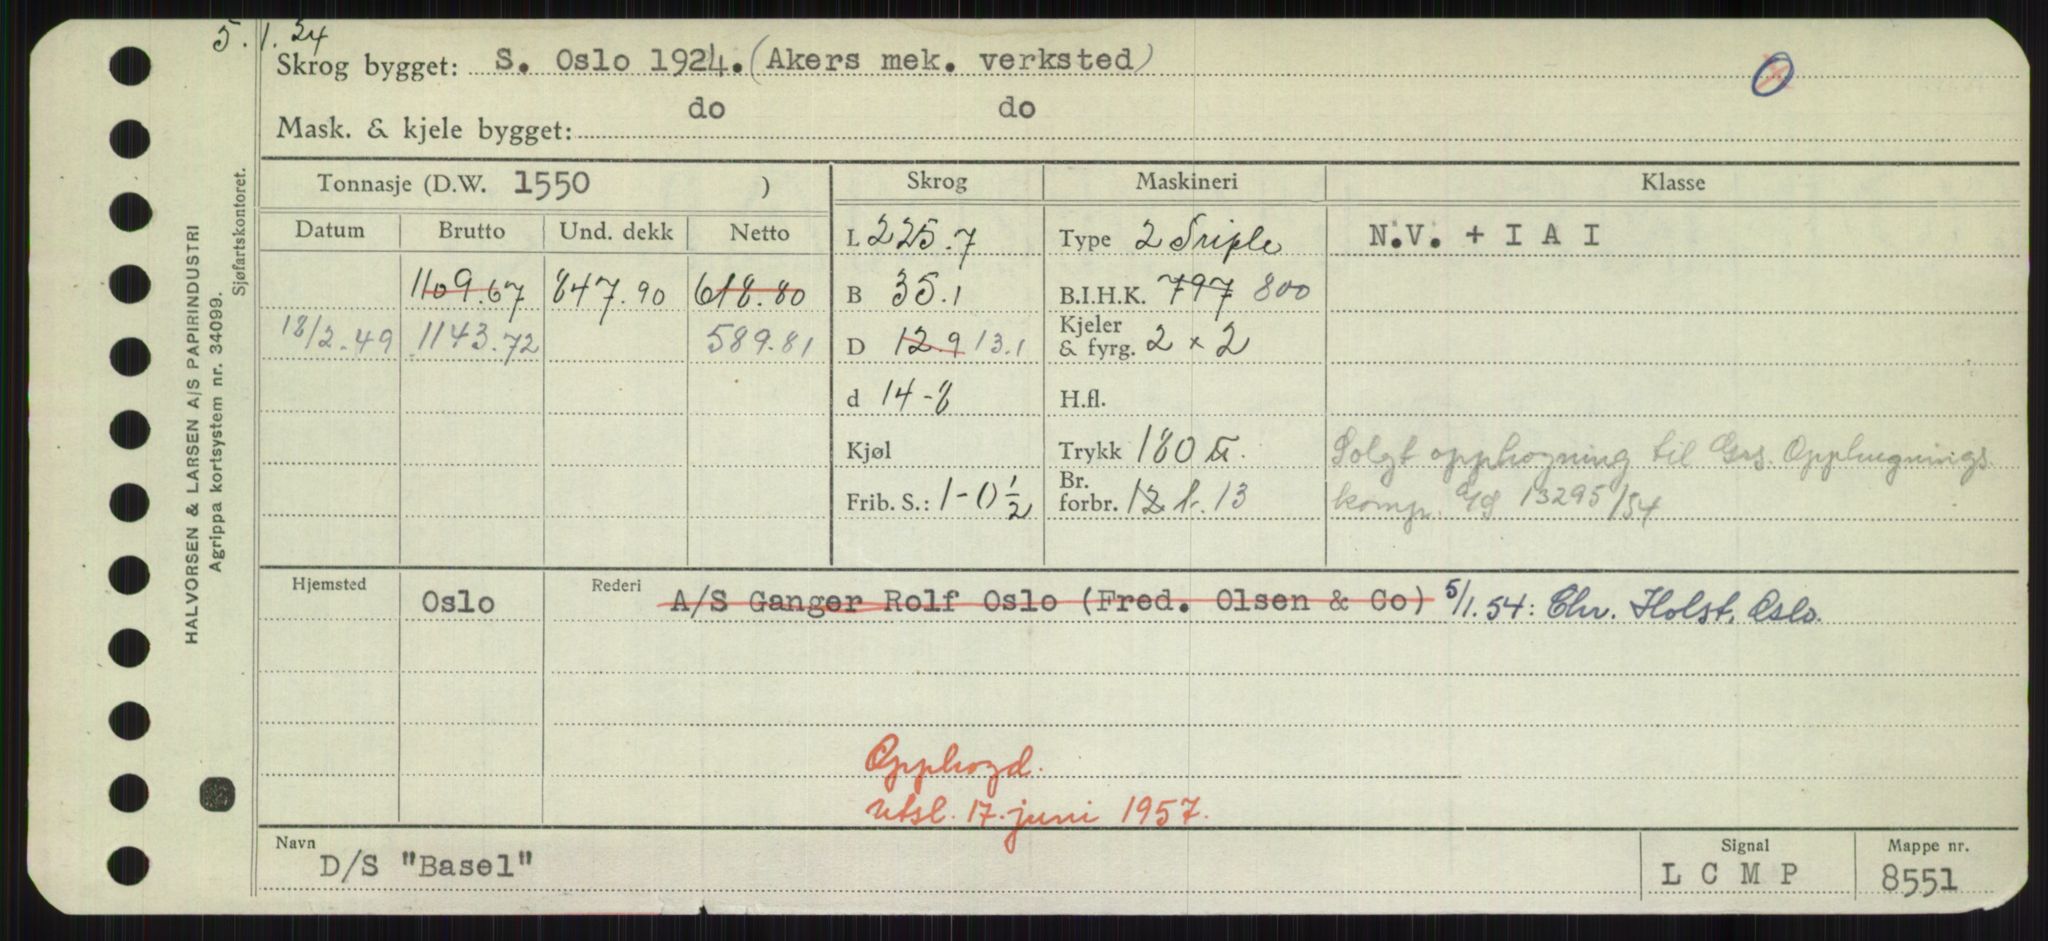 5.1.24
Skrog bygget: S. Oslo 1924. (Akers mek. verksted)
do do
Mask. & kjele bygget:
Tonnasje (D.W. 1550 ) Skrog Maskineri Klasse
Datum Brutto Und. dekk Netto L 225.7 Type 2 Triple N.V. + I A I
1109.67 847.90 618.80 B 35.1 B.I.H.K. 797 800
18/2.49 1143.72 589.81 D 12.9 13.1 Kjeler & fyrg. 2 x 2
d 14-8 H.fl.
Kjøl Trykk 180 Solgt opphogning til Grs. Opphugnings
Frib. S.: 1-0½ Br. forbr. 12 t. 13 komp. 13295/54
Hjemsted Oslo Rederi A/S Ganger Rolf Oslo (Fred. Olsen & Co) 5/1.54: Chr. Holst, Oslo.
Opphogd.
utsl. 17. juni 1957.
Navn Signal Mappe nr.
D/S "Basel" L C M P 8551
HALVORSEN & LARSEN A/S PAPIRINDUSTRI
Agrippa kortsystem nr. 34099.
Sjøfartskontoret.